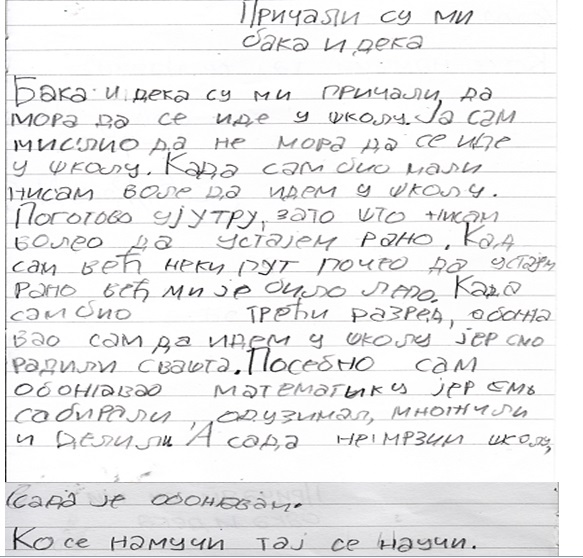 Причали су ми
бака и дека
Бака и дека су ми причали да
мора да се иде у школу. Ја сам
мислио да не мора да се иде
у школу. Када сам био мали
нисам воле да идем у школу.
Поготово ујутру, зато што нисам
волео да устајем рано. Кад
сам већ неки пут почео да устајем
рано већ ми је било лепо. Када
сам био трећи разред, обожа
вао сам да идем у школу јер смо
радили свашта. Посебно сам
обожавао математику јер смо
сабирали, одузимал, множили
и делили А сада не мрзим школу,
Сада је обожавам.
Ко се намучи тај се научи.